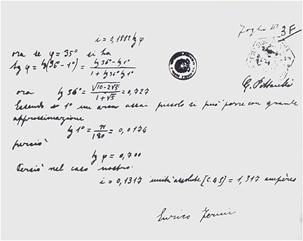 i = 0,1882 tg φ
Foglio N° 3F
ora se φ = 35° si ha
tg φ = tg(36°-1°) = tg 36° - tg 1° / 1 + tg 36° tg 1°
ora tg 36° = √(10-2√5) / 1+√5 = 0,727
Essendo 1° un arco assai piccolo si può porre con grande
approssimazione
tg 1° = π/180 = 0,0174
perciò
tg φ = 0,700
Perciò nel caso nostro:
i = 0,1317 unità assolute [C G S] = 1,317 ampères
Enrico Fermi